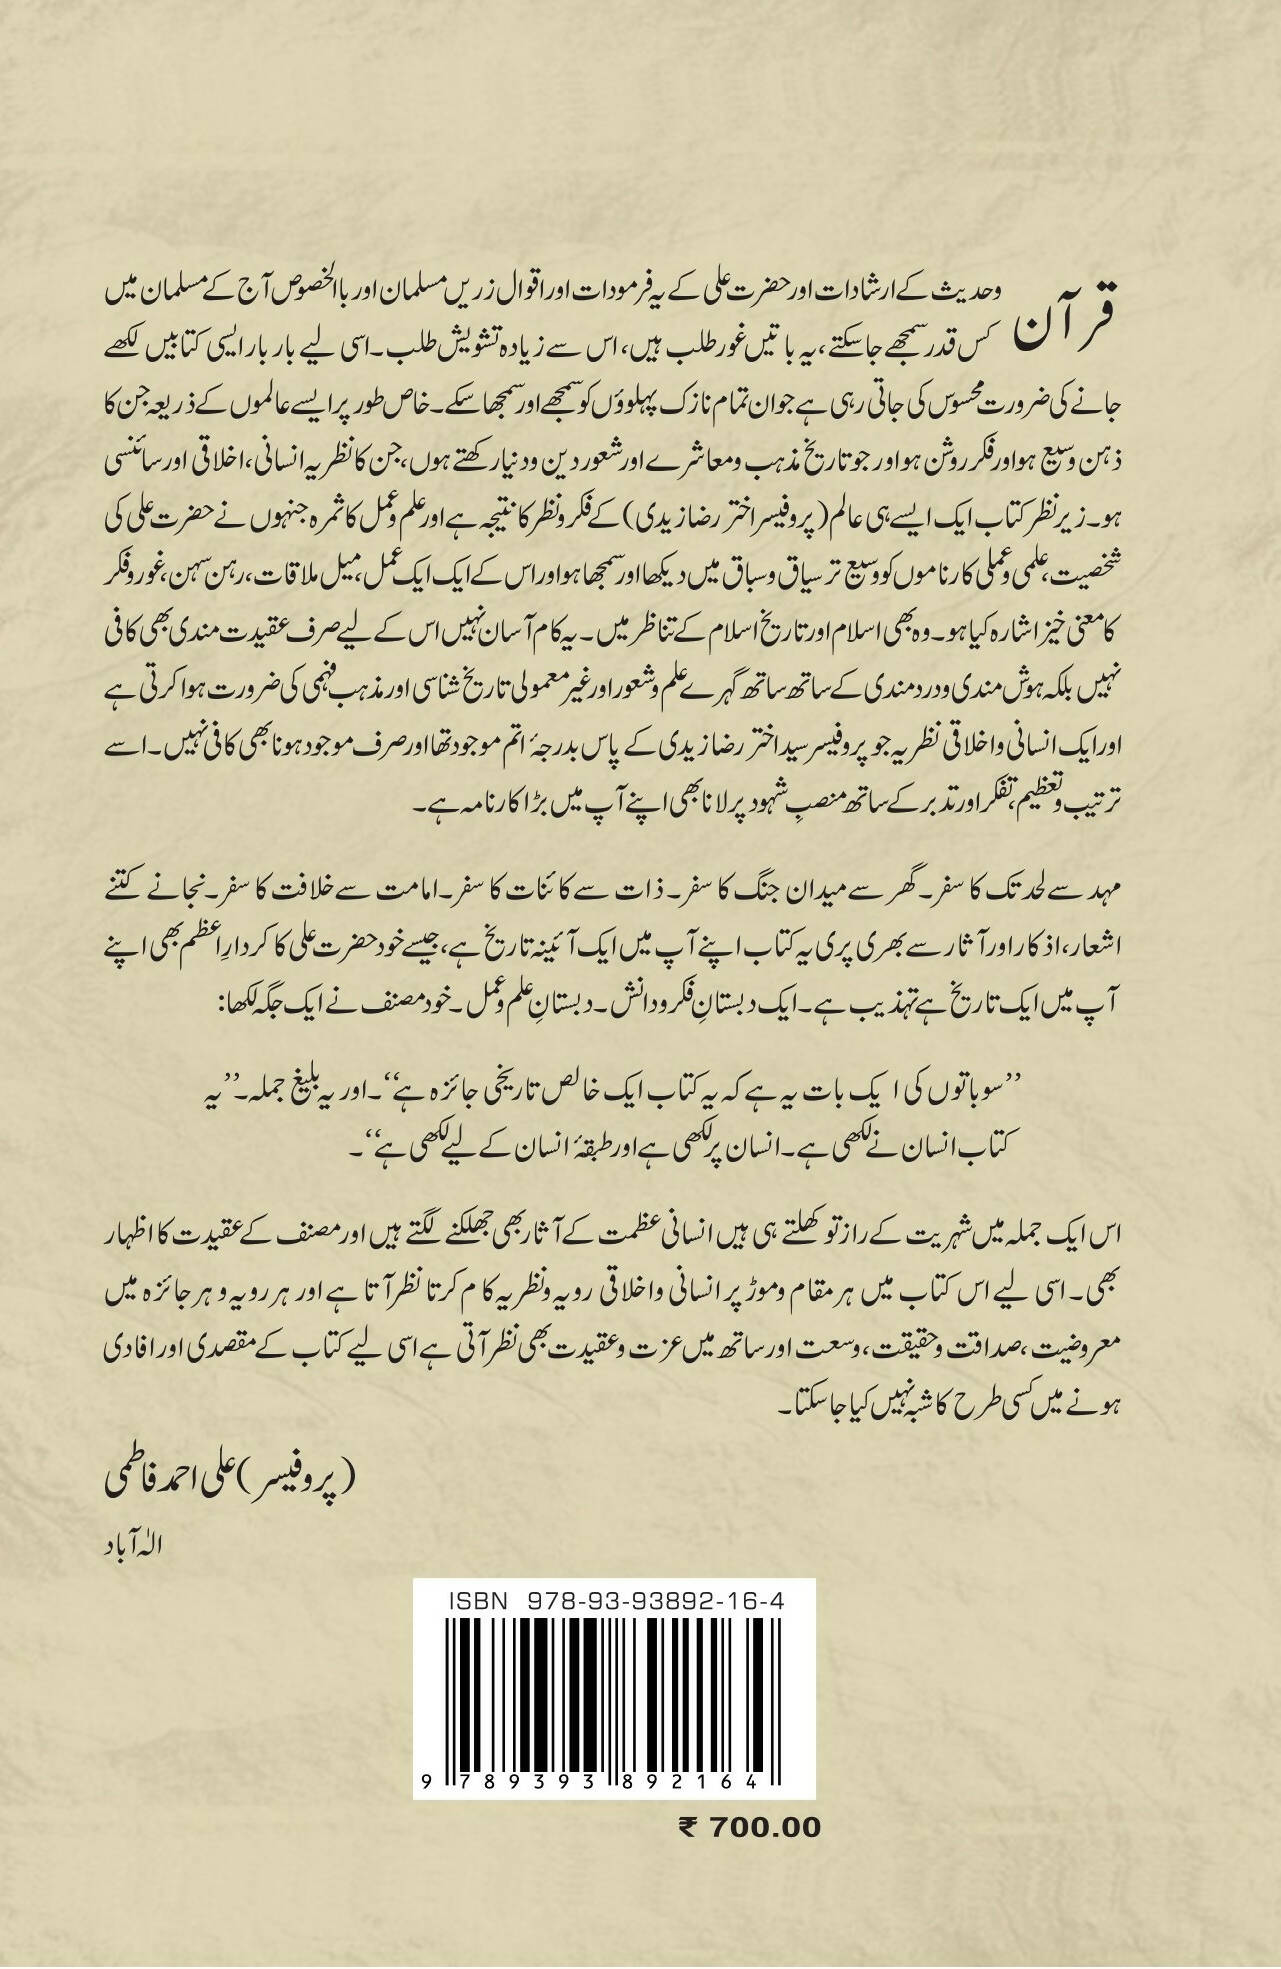 قرآن وحدیث کے ارشادات اور حضرت علی کے یہ فرمودات اور اقوال زریں مسلمان اور باالخصوص آج کے مسلمان میں
کس قدر سمجھے جا سکتے، یہ باتیں غور طلب ہیں، اس سے زیادہ تشویش طلب۔ اسی لیے بار بار ایسی کتابیں لکھے
جانے کی ضرورت محسوس کی جاتی رہی ہے جو ان تمام نازک پہلوؤں کو سمجھے اور سمجھا سکے۔ خاص طور پر ایسے عالموں کے ذریعہ جن کا
ذہن وسیع ہو اور فکر روشن ہو اور جو تاریخ مذہب و معاشرے اور شعور دین و دنیا رکھتے ہوں، جن کا نظریہ انسانی، اخلاقی اور سائنسی
ہو۔ زیر نظر کتاب ایک ایسے ہی عالم (پروفیسر اختر رضا زیدی) کے فکر و نظر کا نتیجہ ہے اور علم و عمل کا ثمرہ جنہوں نے حضرت علی کی
شخصیت، علمی و عملی کارناموں کو وسیع تر سیاق و سباق میں دیکھا اور سمجھا ہو اور اس کے ایک ایک عمل، میل ملاقات، رہن سہن، غور و فکر
کا معنی خیز اشارہ کیا ہو۔ وہ بھی اسلام اور تاریخ اسلام کے تناظر میں۔ یہ کام آسان نہیں اس کے لیے صرف عقیدت مندی بھی کافی
نہیں بلکہ ہوش مندی و دردمندی کے ساتھ ساتھ گہرے علم و شعور اور غیر معمولی تاریخ شناسی اور مذہب فہمی کی ضرورت ہوا کرتی ہے
اور ایک انسانی و اخلاقی نظریہ جو پروفیسر سید اختر رضا زیدی کے پاس بدرجۂ اتم موجود تھا اور صرف موجود ہونا بھی کافی نہیں۔ اسے
ترتیب و تعظیم، تفکر اور تدبر کے ساتھ منصبِ شہود پر لانا بھی اپنے آپ میں بڑا کارنامہ ہے۔
مہد سے لحد تک کا سفر۔ گھر سے میدان جنگ کا سفر۔ ذات سے کائنات کا سفر۔ امامت سے خلافت کا سفر۔ نجانے کتنے
اشعار، اذکار اور آثار سے بھری پری یہ کتاب اپنے آپ میں ایک آئینہ تاریخ ہے، جیسے خود حضرت علی کا کردارِ اعظم بھی اپنے
آپ میں ایک تاریخ ہے تہذیب ہے۔ ایک دبستانِ فکر و دانش۔ دبستانِ علم و عمل۔ خود مصنف نے ایک جگہ لکھا:
’’سو باتوں کی ایک بات یہ ہے کہ یہ کتاب ایک خالص تاریخی جائزہ ہے‘‘۔ اور یہ بلیغ جملہ۔ ’’یہ
کتاب انسان نے لکھی ہے۔ انسان پر لکھی ہے اور طبقۂ انسان کے لیے لکھی ہے‘‘۔
اس ایک جملہ میں شہریت کے راز تو کھلتے ہی ہیں انسانی عظمت کے آثار بھی جھلکنے لگتے ہیں اور مصنف کے عقیدت کا اظہار
بھی۔ اسی لیے اس کتاب میں ہر مقام و موڑ پر انسانی و اخلاقی رویہ و نظریہ کام کرتا نظر آتا ہے اور ہر رویہ و ہر جائزہ میں
معروضیت، صداقت و حقیقت، وسعت اور ساتھ میں عزت و عقیدت بھی نظر آتی ہے اسی لیے کتاب کے مقصدی اور افادی
ہونے میں کسی طرح کا شبہ نہیں کیا جا سکتا۔
(پروفیسر) علی احمد فاطمی
الہٰ آباد
ISBN 978-93-93892-16-4
9 789393 892164
₹ 700.00